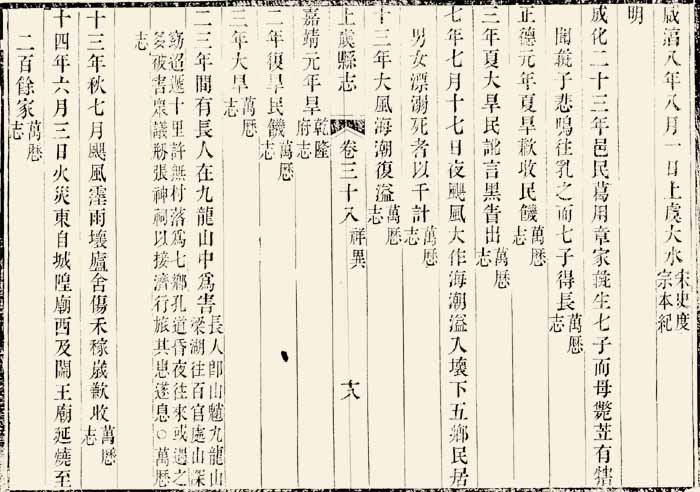 咸淳八年八月一日上虞大水宋史度宗本紀
明
成化二十三年邑民葛用章家㹴生七子而母斃苙有犗
聞㹴子悲鳴往乳之而七子得長萬厯志
正德元年夏旱歉收民饑萬厯志
三年夏大旱民訛言黑眚出萬厯志
七年七月十七日夜颶風大作海潮溢入壞下五鄉民居
男女漂溺死者以千計萬厯志
十三年大風海潮復溢萬厯志
上虞縣志
卷三十八
祥異
嘉靖元年旱乾隆府志
二年復旱民饑萬厯志
三年大旱萬厯志
二三年間有長人在九龍山中為害長人即山魈九龍山梁湖往百官處山深
窈迢遞十里許無村落為七鄉孔道昏夜往來或遇之
多被害眾議剏張神祠以接濟行旅其患遂息○萬厯
志
十三年秋七月颶風霪雨壞廬舍傷禾稼歲歉收萬厯志
十四年六月三日火災東自城隍廟西及關王廟延燒至
二百餘家萬厯志